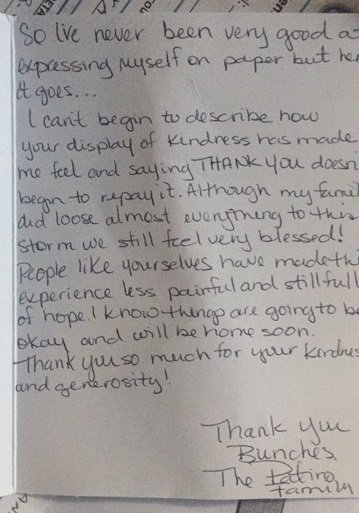 So Iive never been very good at
expressing myself on paper but her
it goes...
I can't begin to describe how
your display of kindness has made
me feel and saying THANK YOU doesn
begin to repay it. Although my famil
did loose almost everything to this
storm we still feel very blessed!
People like yourselves have made thi
experience less painful and still full
of hope. I know things are going to be
okay and will be home soon.
Thank you so much for your kindnes
and generosity!
Thank you
Bunches
The
family